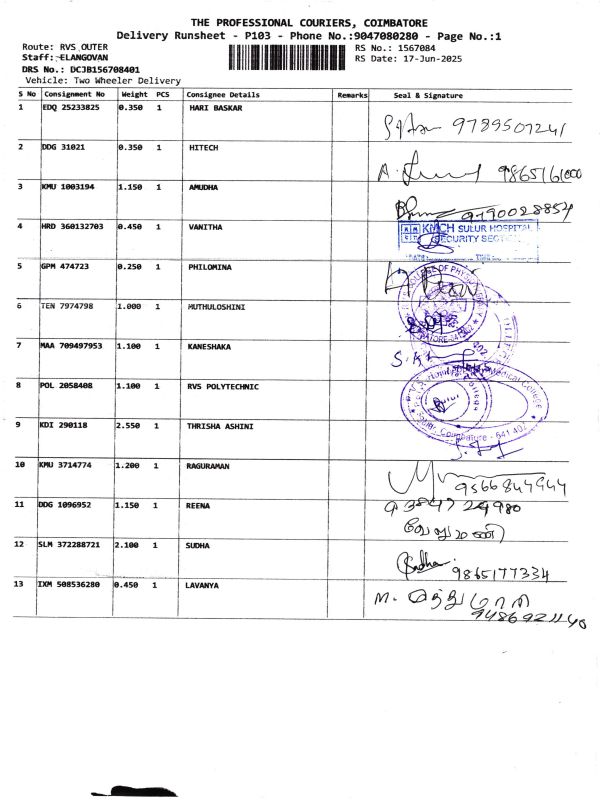 THE PROFESSIONAL COURIERS, COIMBATORE
Delivery Runsheet - P103 - Phone No.:9047080280 - Page No.:1
Route: RVS_OUTER
RS No.: 1567084
Staff: ELANGOVAN
RS Date: 17-Jun-2025
DRS No.: DCJB156708401
Vehicle: Two Wheeler Delivery
S No Consignment No Weight PCS Consignee Details Remarks Seal & Signature
1 EDQ 25233825 0.350 1 HARI BASKAR
9789507241
2 DDG 31021 0.350 1 HITECH
3 KMU 1003194 1.150 1 AMUDHA
9790028854
4 HRD 360132703 0.450 1 VANITHA
KMCH SULUR HOSPITAL
SECURITY SECTION
5 GPM 474723 0.250 1 PHILOMINA
6 TEN 7974798 1.000 1 MUTHULOSHINI
7 MAA 709497953 1.100 1 KANESHAKA
8 POL 2058408 1.100 1 RVS POLYTECHNIC
Medical College
Sulur, Coimbatore - 641 402
9 KDI 290118 2.550 1 THRISHA ASHINI
10 KMU 3714774 1.200 1 RAGURAMAN
9566844944
11 DDG 1096952 1.150 1 REENA
வேலுமணி
12 SLM 372288721 2.100 1 SUDHA
Sudha
9865177334
13 IXM 508536280 0.450 1 LAVANYA